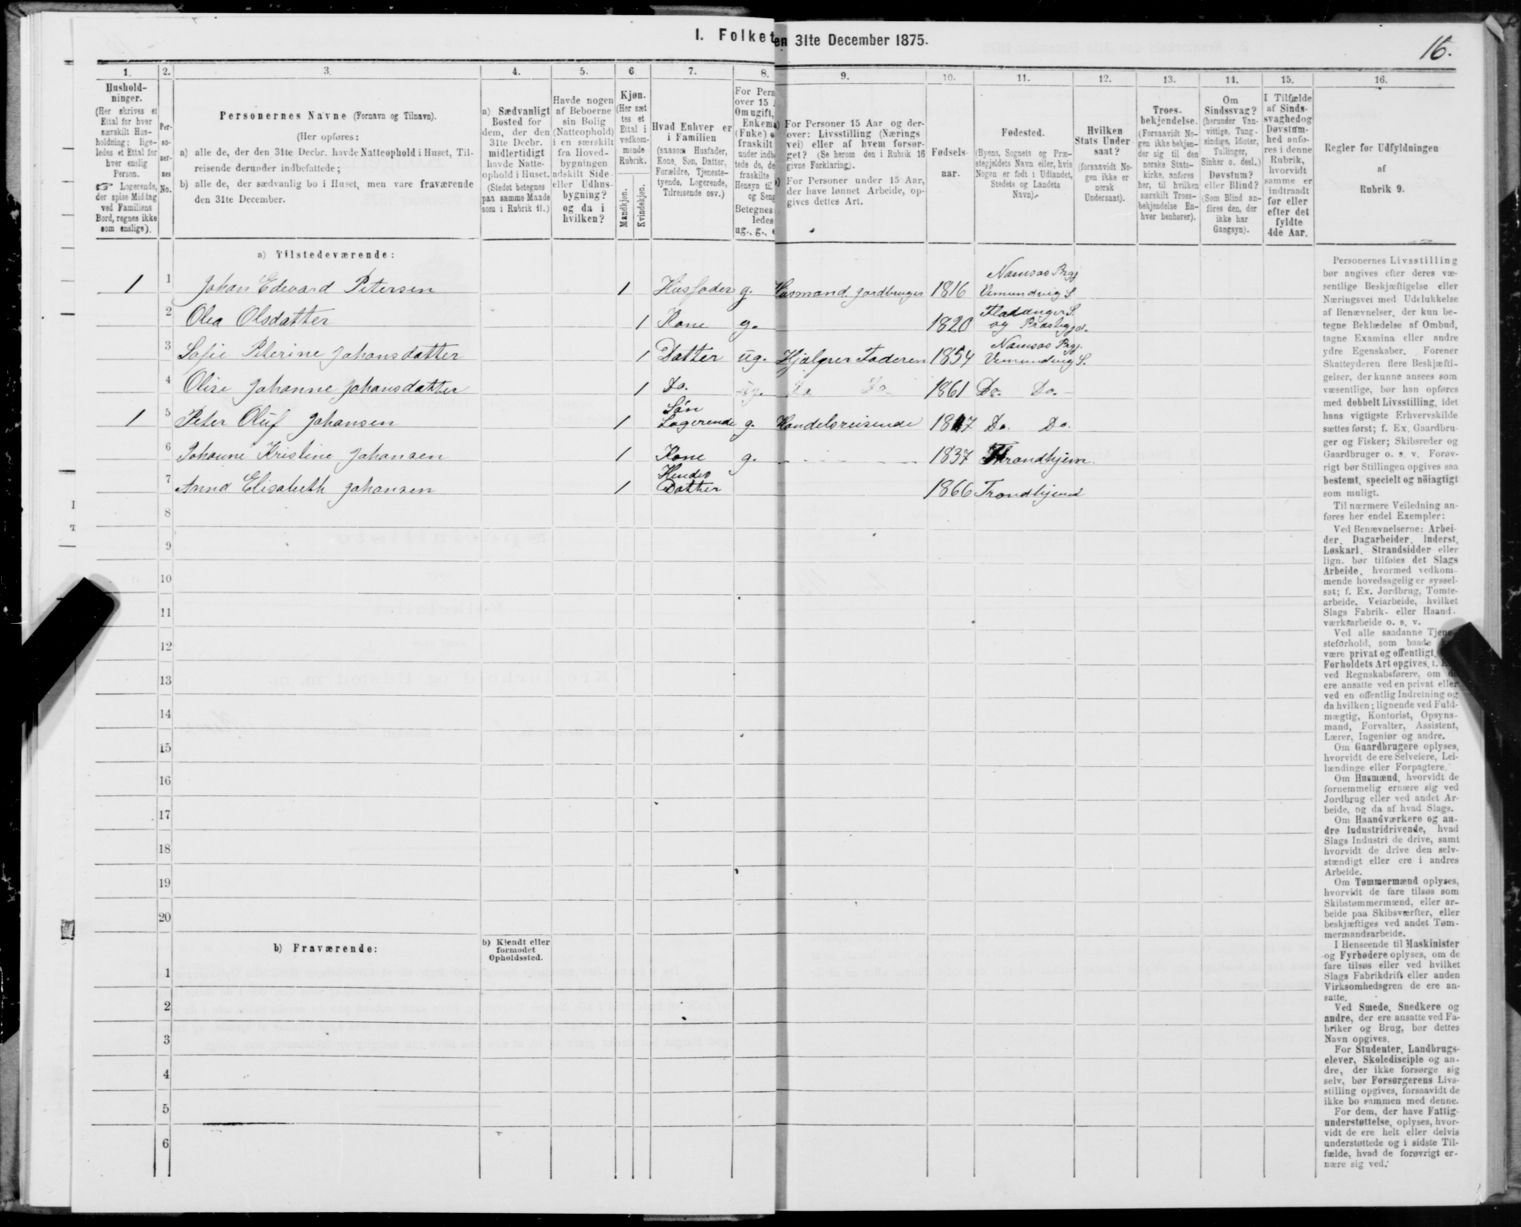 I. Folket
en 31te December 1875.
16.
1.
2.
3.
4.
5.
6
7.
8.
9.
10.
11.
12.
13.
14.
15.
16.
Hushold-
ninger.
(Her skrives et
Ettal for hver
særskilt Hus-
holdning; lige-
ledes et Ettal for
hver enslig
Person.
☞ Logerende,
der spise Middag
ved Familiens
Bord, regnes ikke
som enslige).
Per-
so-
ner-
nes
No.
Personernes Navne (Fornavn og Tilnavn).
(Her opføres:
a) alle de, der den 31te Decbr. havde Natteophold i Huset, Til-
reisende derunder indbefattede;
b) alle de, der sædvanlig bo i Huset, men vare fraværende
den 31te December.
a) Sædvanligt
Bosted for
dem, der den
31te Decbr.
midlertidigt
havde Natte-
ophold i Huset.
(Stedet betegnes
paa samme Maade
som i Rubrik 11.)
Havde nogen
af Beboerne
sin Bolig
(Natteophold)
i en særskilt
fra Hoved-
bygningen
adskilt Side-
eller Udhus-
bygning?
og da i
hvilken?
Kjøn.
(Her sæt
tes et
Ettal i
vedkom-
mende
Rubrik.
Mandkjøn.
Kvindekjøn.
Hvad Enhver er
i Familien
(saasom Husfader,
Kone, Søn, Datter,
Forældre, Tjeneste-
tyende, Logerende,
Tilreisende osv.)
For Pers
over 15
Om ugift,
Enkem
(Fuke)
fraskilt
under indb
tede de, de
fraskilte
Hensyn til
og Seng
Betegnes
ledes
ug., g.,
For Personer 15 Aar og der-
over: Livsstilling (Nærings
vei) eller af hvem forsør-
get? (Se herom den i Rubrik 16
givne Forklaring).
For Personer under 15 Aar,
der have lønnet Arbeide, op-
gives dettes Art.
Fødsels-
aar.
Fødested.
(Byens, Sognets og Præ-
stegjeldets Navn eller, hvis
Nogen er født i Udlandet,
Stedets og Landets
Navn).
Hvilken
Stats Under
saat?
(forsaavidt No-
gen ikke er
norsk
Undersaat).
Troes-
bekjendelse.
(Forsaavidt No-
gen ikke bekjen-
der sig til den
norske Stats-
kirke, anføres
her, til hvilken
særskilt Troes-
bekjendelse En-
hver henhører).
Om
Sindssvag?
(herunder Van-
vittige, Tung-
sindige, Idioter,
Tullinger,
Sinker o. desl.)
Døvstum?
eller Blind?
(Som Blind an-
føres den, der
ikke har
Gangsyn).
I Tilfælde
af Sinds-
svaghed og
Døvstum-
hed anfø-
res i denne
Rubrik,
hvorvidt
samme er
indtraadt
før eller
efter det
fyldte
4de Aar.
Regler før Udfyldningen
af
Rubrik 9.
a) Tilstedeværende:
1 1 Johan Edevard Petersen 1 Husfader g. Husmand jordbruger 1816 Namsos Prgj Vemundvig S
2 Olea Olsdatter 1 Kone g. 1820 Fladanger S. og Præstegjd.
3 Sofie Peterine Johansdatter 1 Datter ug. Hjælper Faderen 1854 Namsos Prgj. Vemundvig S.
4 Olise Johanne Johansdatter 1 Do. ug. Do Do 1861 Do. Do.
1 5 Peter Oluf Johansen 1 Søn Logerende g. Handelsreisende 1847 Do. Do.
6 Johanne Kristine Johansen 1 Kone g. 1837 Trondhjem
7 Anna Elisabeth Johansen 1 Hendes Datter 1866 Trondhjem
8
9
10
11
12
13
14
15
16
17
18
19
20
b) Fraværende:
b) Kjendt eller
formodet
Opholdssted.
1
2
3
4
5
6
Personernes Livsstilling
bør angives efter deres væ-
sentlige Beskjæftigelse eller
Næringsvei med Udelukkelse
af Benævnelser, der kun be-
tegne Beklædelse af Ombud,
tagne Examina eller andre
ydre Egenskaber. Forener
Skatteyderen flere Beskjæfti-
gelser, der kunne ansees som
væsentlige, bør han opføres
med dobbelt Livsstilling, idet
hans vigtigste Erhvervskilde
sættes først; f. Ex. Gaardbru-
ger og Fisker; Skibsreder og
Gaardbruger o. s. v. Forøv-
rigt bør Stillingen opgives saa
bestemt, specielt og nøiagtigt
som muligt.
Til nærmere Veiledning an-
føres her endel Exempler:
Ved Benævnelserne: Arbei-
der, Dagarbeider, Inderst,
Løskarl, Strandsidder eller
lign. bør tilføies det Slags
Arbeide, hvormed vedkom-
mende hovedsagelig er syssel-
sat; f. Ex. Jordbrug, Tomte-
arbeide, Veiarbeide, hvilket
Slags Fabrik- eller Haand-
værksarbeide o. s. v.
Ved alle saadanne Tjene-
steforhold, som baade
være privat og offentligt,
Forholdets Art opgives, f.
ved Regnskabsførere, om
ere ansatte ved en privat eller
ved en offentlig Indretning og
da hvilken; lignende ved Fuld-
mægtig, Kontorist, Opsyns-
mand, Forvalter, Assistent,
Lærer, Ingeniør og andre.
Om Gaardbrugere oplyses,
hvorvidt de ere Selveiere, Lei-
lændinge eller Forpagtere.
Om Husmænd, hvorvidt de
fornemmelig ernære sig ved
Jordbrug eller ved andet Ar-
beide, og da af hvad Slags.
Om Haandværkere og an-
dre Industridrivende, hvad
Slags Industri de drive, samt
hvorvidt de drive den selv-
stændigt eller ere i andres
Arbeide.
Om Tømmermænd oplyses,
hvorvidt de fare tilsøs som
Skibstømmermænd, eller ar-
beide paa Skibsværfter, eller
beskjæftiges ved andet Tøm-
mermandsarbeide.
I Henseende til Maskinister
og Fyrbødere oplyses, om de
fare tilsøs eller ved hvilket
Slags Fabrikdrift eller anden
Virksomhedsgren de ere an-
satte.
Ved Smede, Snedkere og
andre, der ere ansatte ved Fa-
briker og Brug, bør dettes
Navn opgives.
For Studenter, Landbrugs-
elever, Skoledisciple og an-
dre, der ikke forsørge sig
selv, bør Forsørgerens Livs-
stilling opgives, forsaavidt de
ikke bo sammen med denne.
For dem, der have Fattig-
understøttelse, oplyses, hvor-
vidt de ere helt eller delvis
understøttede og i sidste Til-
fælde, hvad de forøvrigt er-
nære sig ved.